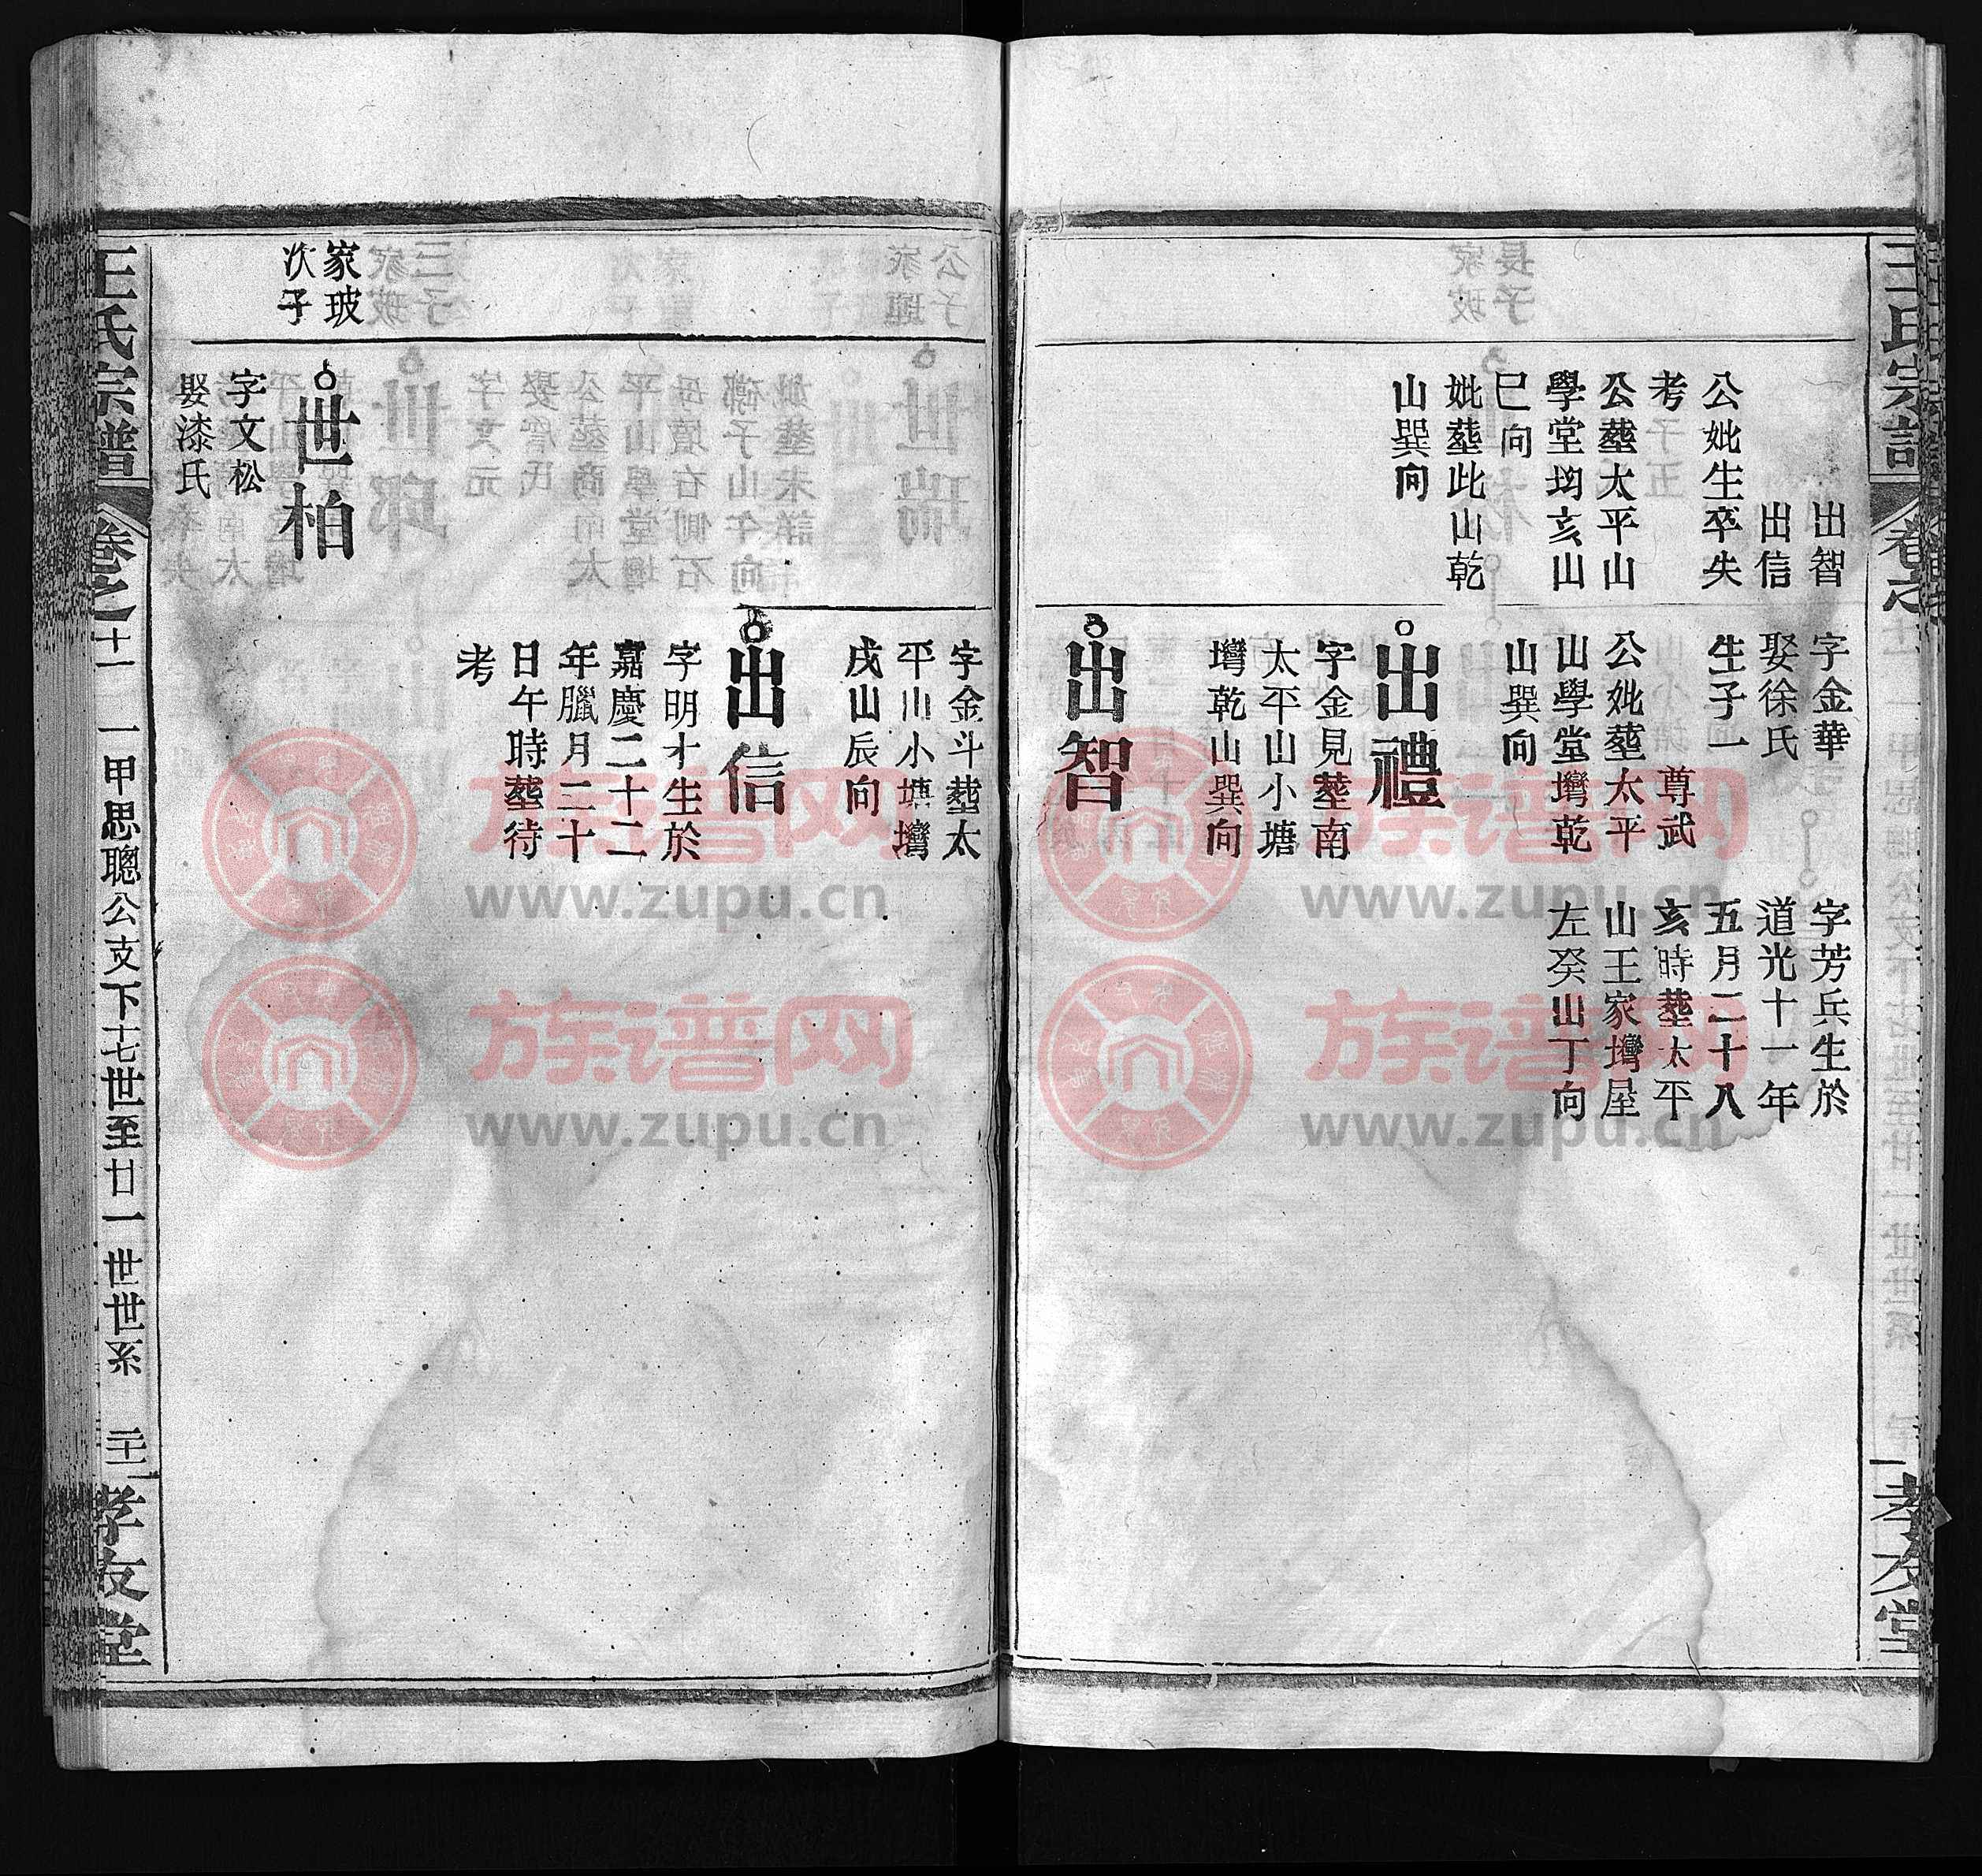 王氏宗譜
孝友堂
出智
出信
公妣生卒失
考
公塟太平山
學堂塆亥山
巳向
妣塟此山乾
山巽向
字金華
娶徐氏
生子一
尊武
公妣塟太平
山學堂塆乾
山巽向
出禮
字金見塟南
太平山小塘
塆乾山巽向
出智
字芳兵生於
道光十一年
五月二十八
亥時塟太平
山王家塆屋
左癸山丁向
字金斗塟太
平山小塘塆
戌山辰向
出信
字明才生於
嘉慶二十二
年臘月二十
日午時塟待
考
家玻
次子
世柏
字文松
娶漆氏
王氏宗譜
卷之十一
一甲思聰公支下十七世至廿一世世系
二十一
孝友堂
族谱网
www.zupu.cn
族谱网
www.zupu.cn
族谱网
www.zupu.cn
族谱网
www.zupu.cn